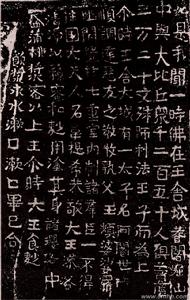 如是我聞一時佛在王舍城耆闍崛山
中與大比丘眾千二百五十人俱菩薩
三万二千文殊師利法王子而為上首
尒時王舍大城有一太子名阿闍世隨
順調達惡友之教收執父王頻婆娑羅
置七重室內制諸群臣一不得
往國大夫人名韋提希恭敬大王澡浴
清淨以蘇蜜和麨用塗其身諸瓔珞中
盛蒲桃漿密以上王尒時大王食麨
飲漿求水漱口漱口畢已合